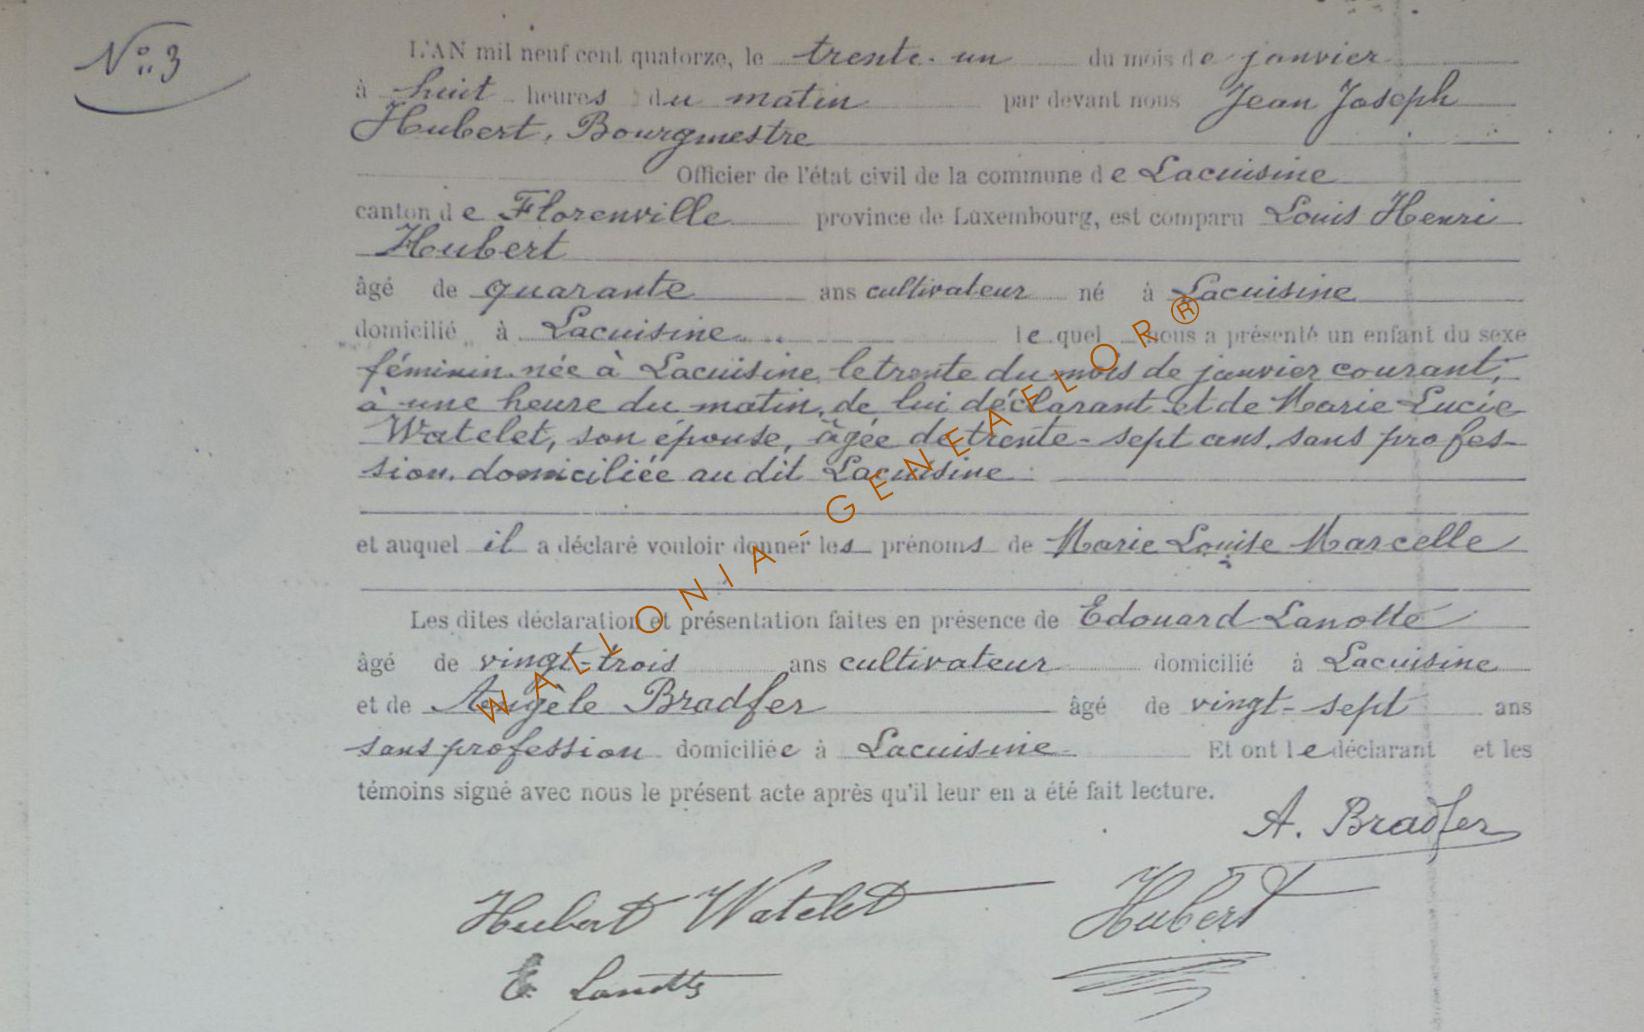 N° 3
L'AN mil neuf cent quatorze, le trente-un du mois de janvier
à huit heures du matin par devant nous Jean Joseph
Hubert, Bourgmestre
Officier de l'état civil de la commune de Lacuisine
canton de Florenville province de Luxembourg, est comparu Louis Henri
Hubert
âgé de quarante ans cultivateur né à Lacuisine
domicilié à Lacuisine lequel nous a présenté un enfant du sexe
féminin née à Lacuisine, le trente du mois de janvier courant,
à une heure du matin, de lui déclarant et de Marie Lucie
Watelet, son épouse, âgée de trente-sept ans, sans profes-
sion, domiciliée au dit Lacuisine
et auquel il a déclaré vouloir donner les prénoms de Marie Louise Marcelle
Les dites déclaration et présentation faites en présence de Edouard Lanotte
âgé de vingt-trois ans cultivateur domicilié à Lacuisine
et de Angèle Bradfer âgé de vingt-sept ans
sans profession domiciliée à Lacuisine Et ont le déclarant et les
témoins signé avec nous le présent acte après qu'il leur en a été fait lecture.
A. Bradfer
Hubert Watelet Hubert
E. Lanotte
WALLONIA-GENEAFLOR®